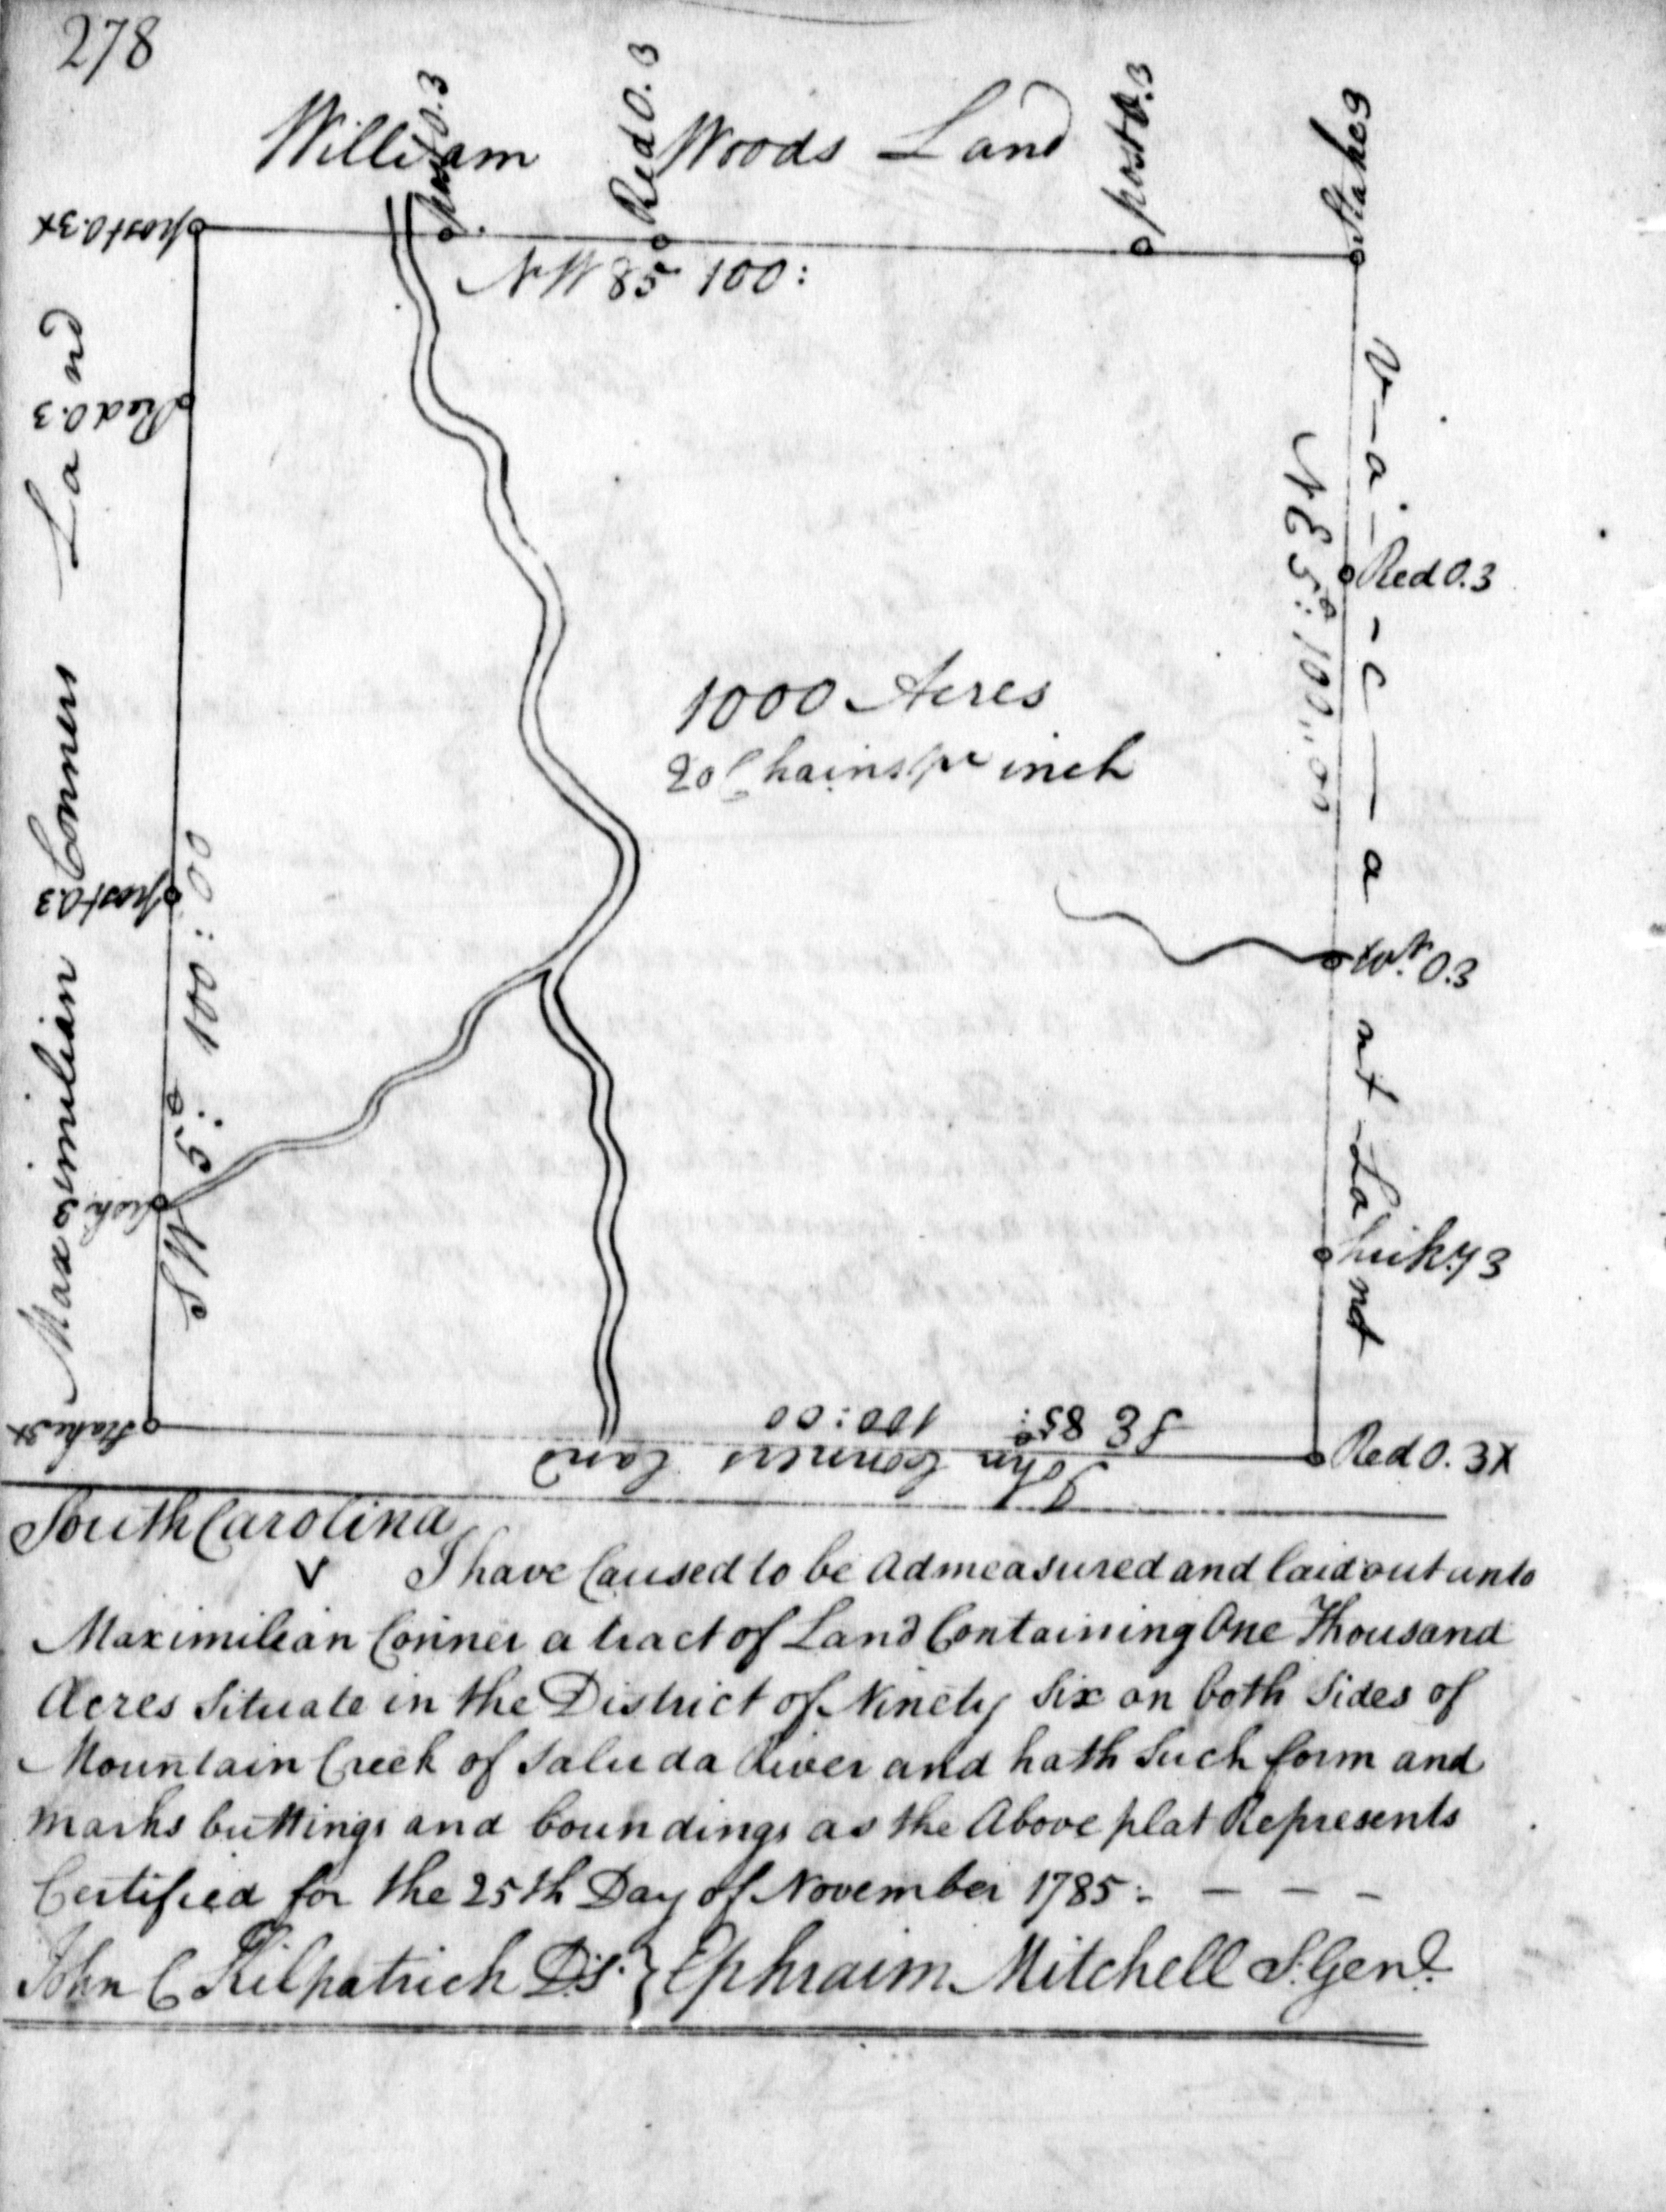 278
William Woods Land
post 0.3
Red 0.3
post 0.3
Stake 3
post 0.3x
NW 85 100:
Red 0.3
Maximilian Conners Land
post 0.3
SW 5°: 100:00
Stake 3x
1000 Acres
20 Chains pr inch
NE 5°: 100,,00
V-a-c-a nt Land
Red 0.3
0.3
hick.y 3
Red 0. 3X
SE 85°: 100:00
John Conners Land
South Carolina
I have Caused to be admeasured and laid out unto
Maximilian Conner a tract of Land Containing One Thousand
Acres Situate in the District of Ninety Six on both Sides of
Mountain Creek of Saluda River and hath Such form and
marks buttings and boundings as the Above plat Represents
Certified for the 25th Day of November 1785:- - - -
John C Kilpatrick D.S. } Ephraim Mitchell S. Genl.